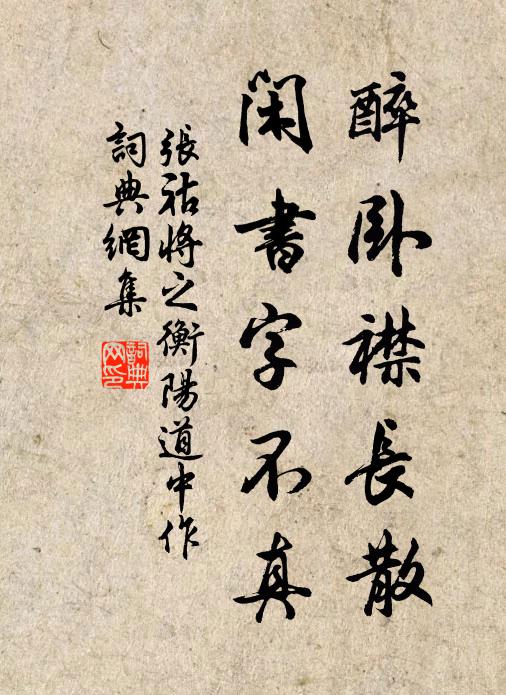 醉卧襟長散
閑書字不真
張祜將之衡陽道中作
詞典網集
詞典网印